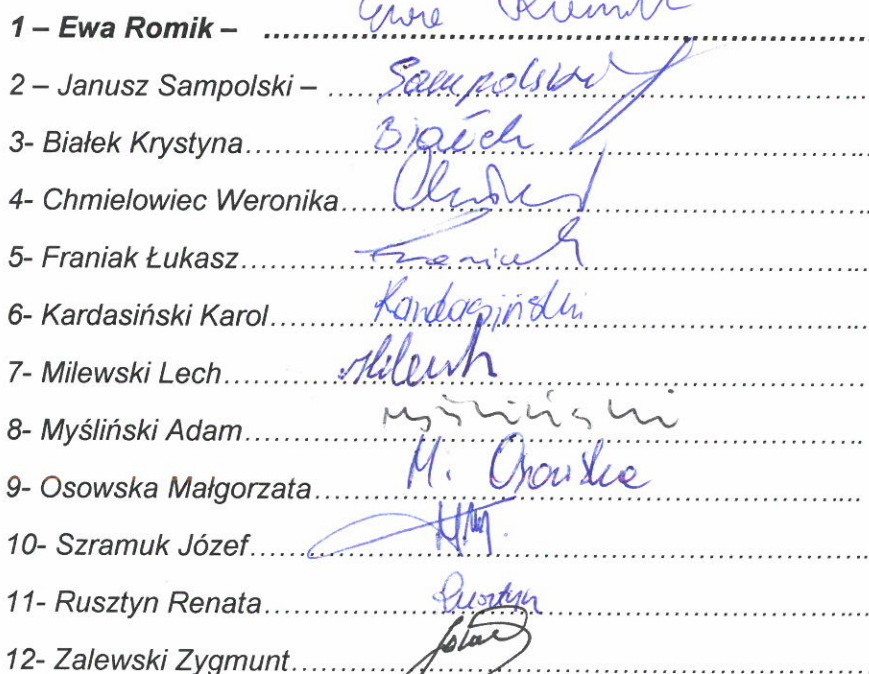 1 – Ewa Romik – ............ Ewa Romik
2 – Janusz Sampolski – ............ Sampolski
3- Białek Krystyna............ Białek
4- Chmielowiec Weronika............
5- Franiak Łukasz............ Franiak
6- Kardasiński Karol............ Kardasiński
7- Milewski Lech............ Milewski
8- Myśliński Adam............ Myśliński
9- Osowska Małgorzata............ M. Osowska
10- Szramuk Józef............
11- Rusztyn Renata............ Rusztyn
12- Zalewski Zygmunt............